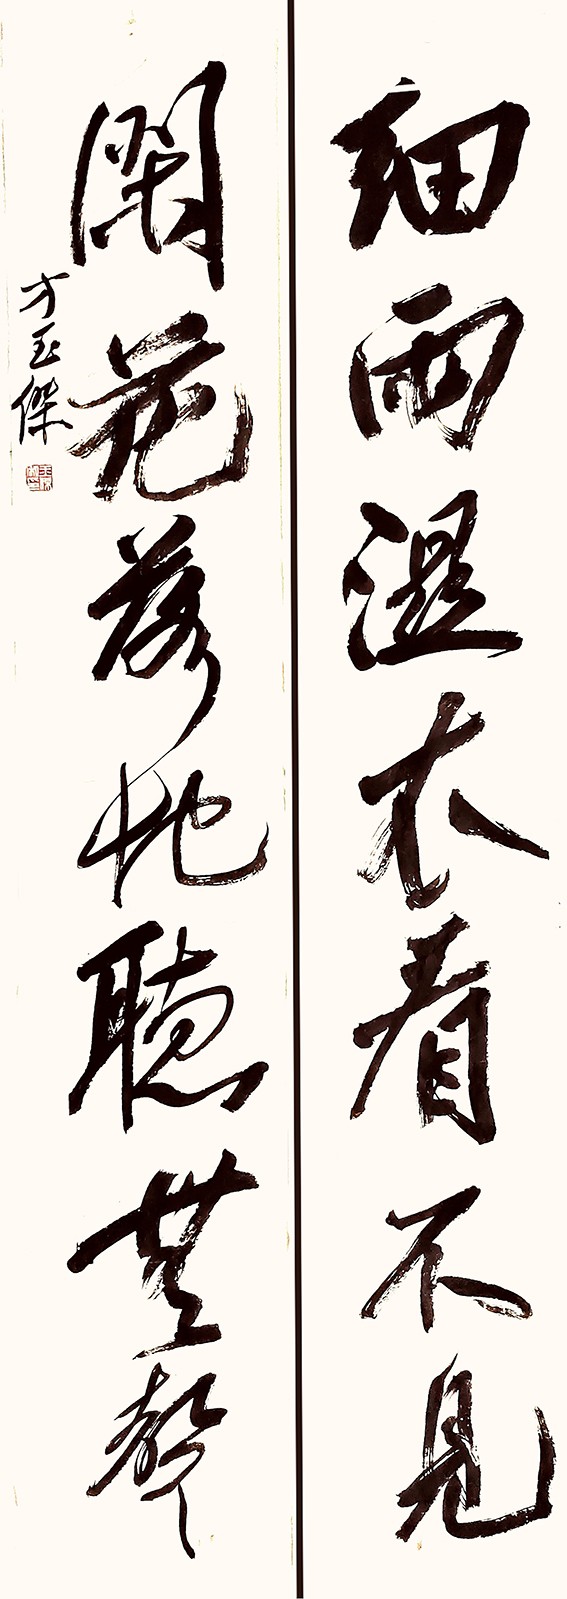 細雨濕衣看不見
閑花落地聽無聲
方玉傑